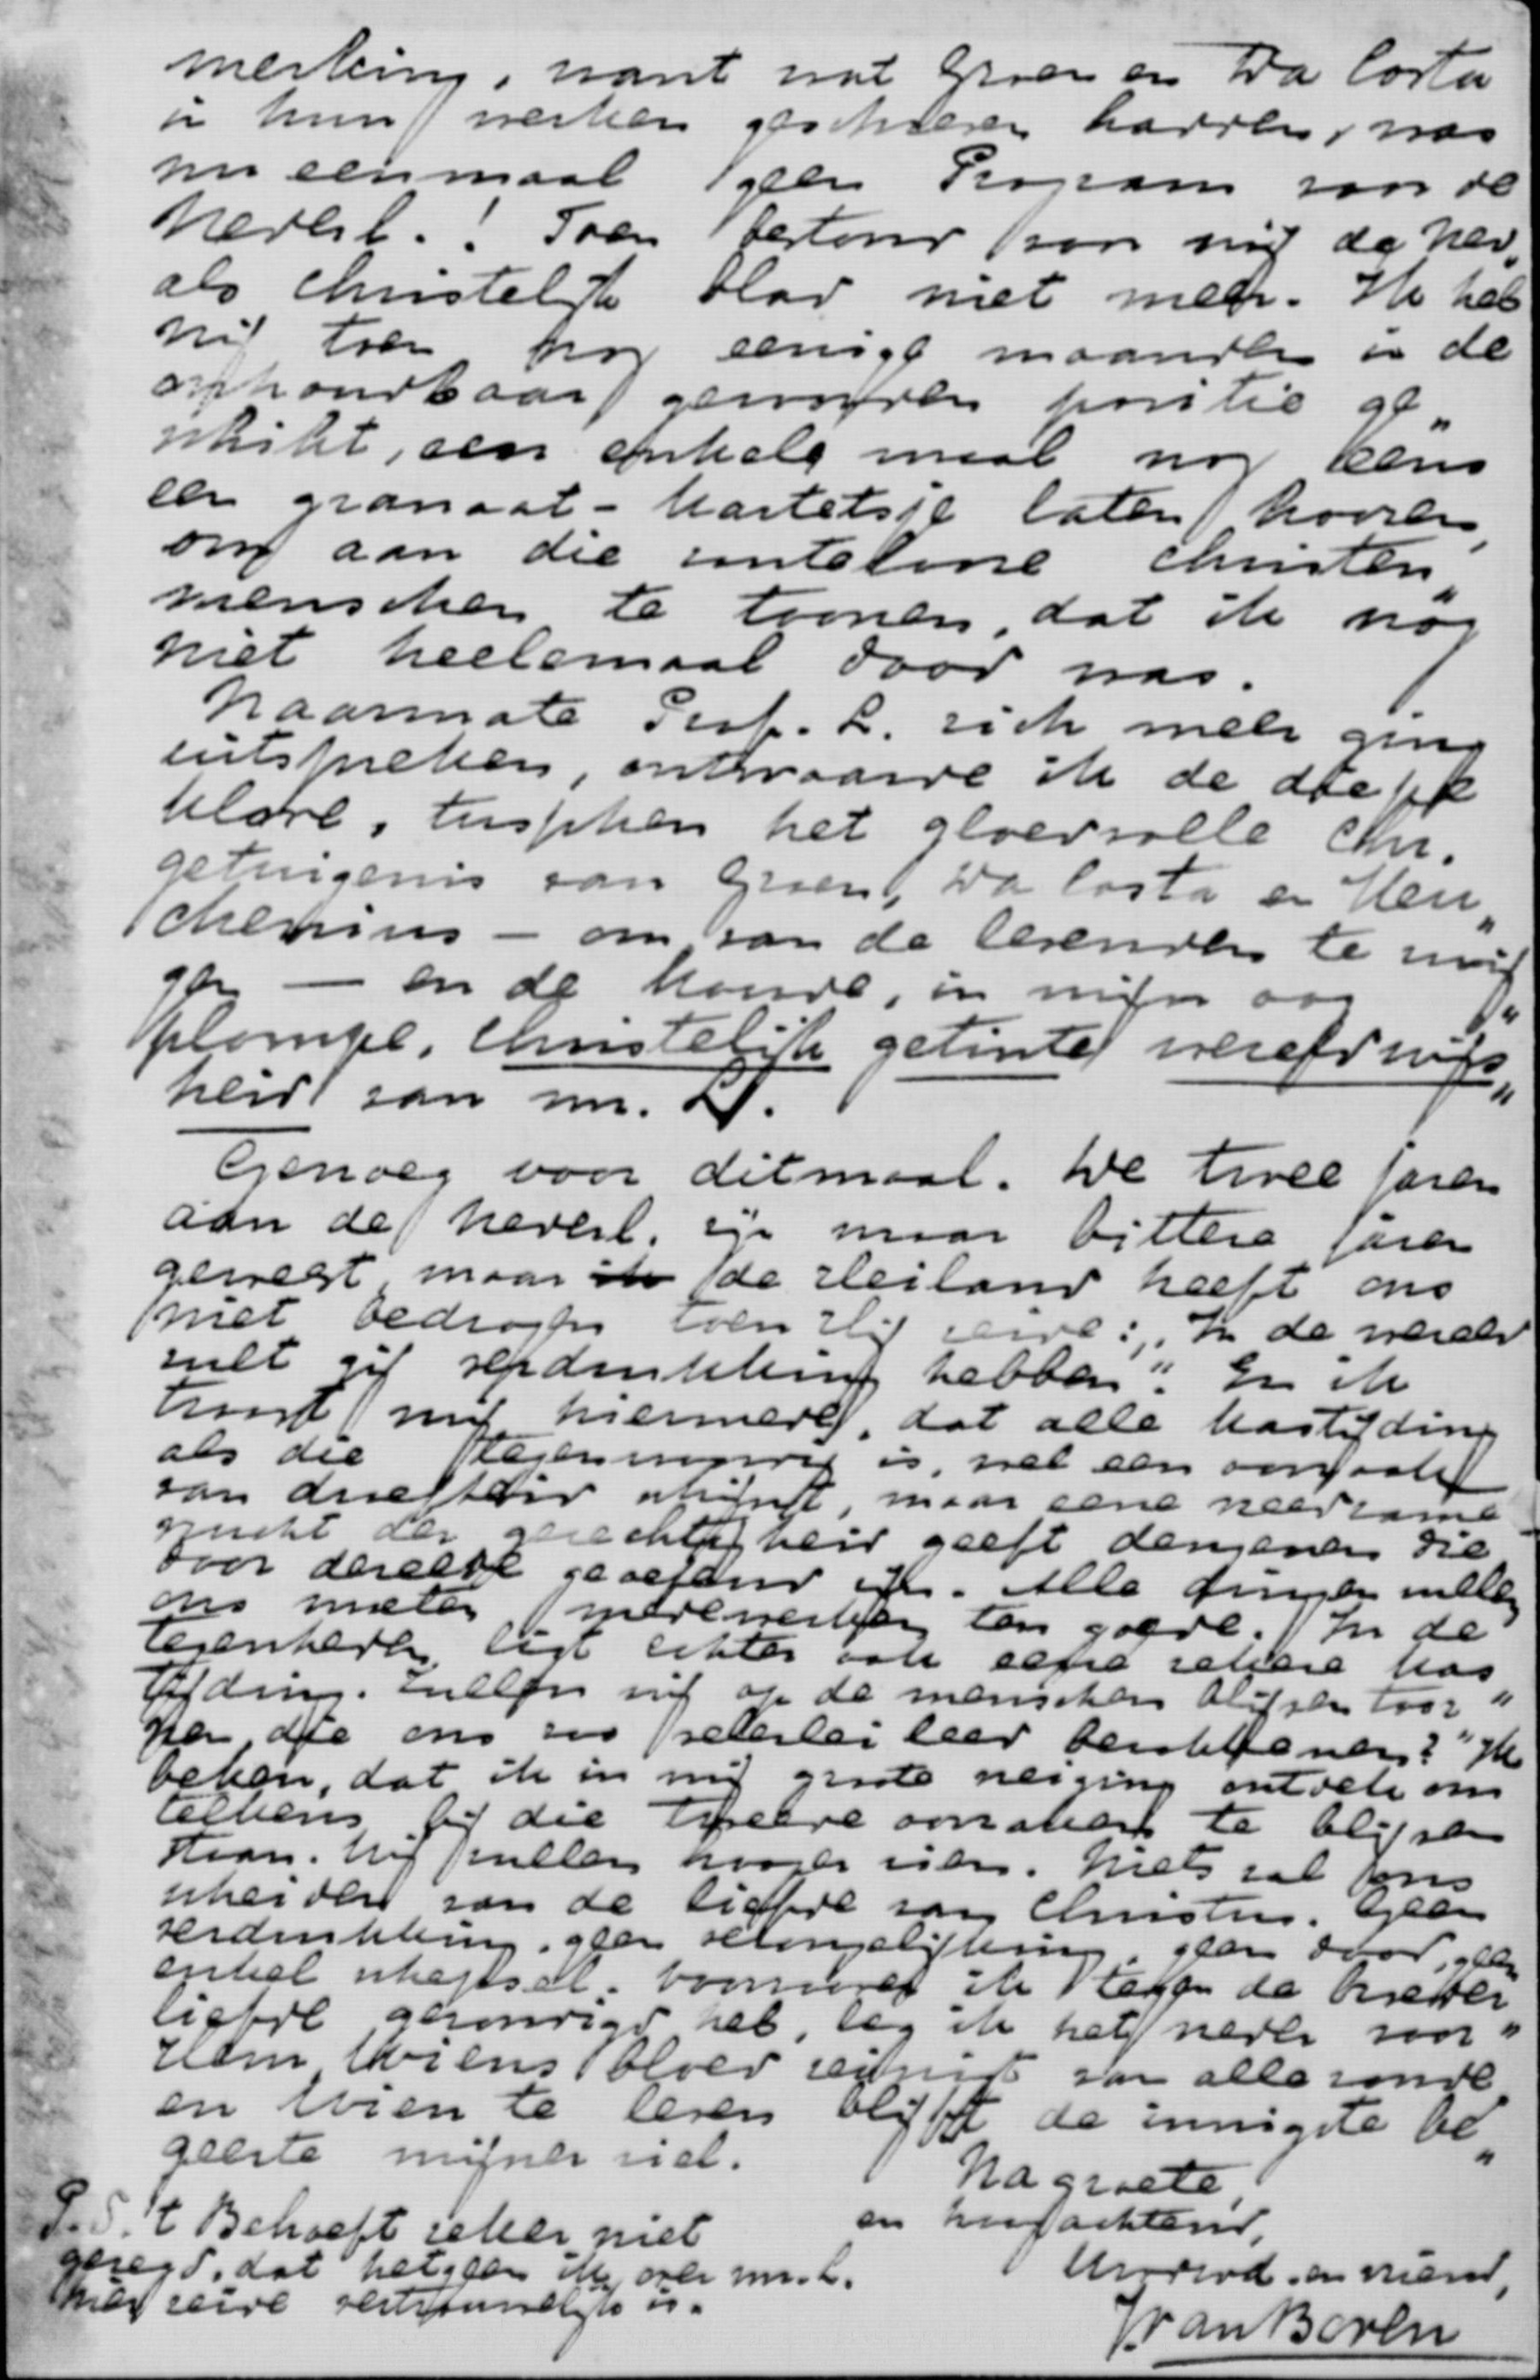 merking, want wat Groen en Da Costa
in hun werken geschreven hadden, was
nu eenmaal geen Program van de
Nederl.! Toen bestond voor mij de Ned„
als christelijk blad niet meer. Ik heb
mij toen nog eenige maanden in de
onhoudbaar geworden positie ge„
schikt, een enkele maal nog eens
een granaat-kartetsje laten hooren,
om aan die zoutelooze christen„
menschen te toonen, dat ik nog
niet heelemaal dood was.
Naarmate Prof. L. zich meer ging
uitspreken, ontwaarde ik de diepe
klove, tusschen het gloedvolle Chr.
getuigenis van Groen, Da Costa en Keu„
chenius – om van de levenden te zwij„
gen — en de koude, in mijn oog
plompe, christelijk getinte wereldwijs„
heid van mr. L.
Genoeg voor ditmaal. De twee jaren
aan de Nederl. zijn maar bittere jaren
geweest, maar de Heiland heeft ons
niet bedrogen toen Hij zeide: „In de wereld
zult gij verdrukking hebben". En ik
troost mij hiermede, dat alle kastijding
als die tegenwoordig is, wel een oorzaak
van droefheid schijnt, maar eene vreedzame
vrucht der gerechtigheid geeft dengenen die
door dezelve geoefend zijn. Alle dingen zullen
ons moeten medewerken ten goede. In de
tegenheden ligt echter ook eene zekere kas„
tijding. Zullen wij op de menschen blijven too„
nen, die ons zoo velerlei leed berokkenen? Ik
beken, dat ik in mij groote neiging ontdek om
telkens bij die tweede oorzaken te blijven
staan. Wij zullen hooger zien. Niets zal ons
scheiden van de liefde van Christus. Geen
verdrukking, geen teleurstelling, geen dood, geen
enkel schepsel. Voorzoover ik tegen de broeder„
liefde gezondigd heb, leg ik het neder voor
Hem Wiens bloed reinigt van alle zonde
en Wien te leven blijft de innigste be„
geerte mijner ziel.
Na groete,
en hoogachtend,
Uw dvd. en vriend,
J van Boven
P.S. 't Behoeft zeker niet
gezegd, dat hetgeen ik over mr. L.
hier zeide vertrouwelijk is.